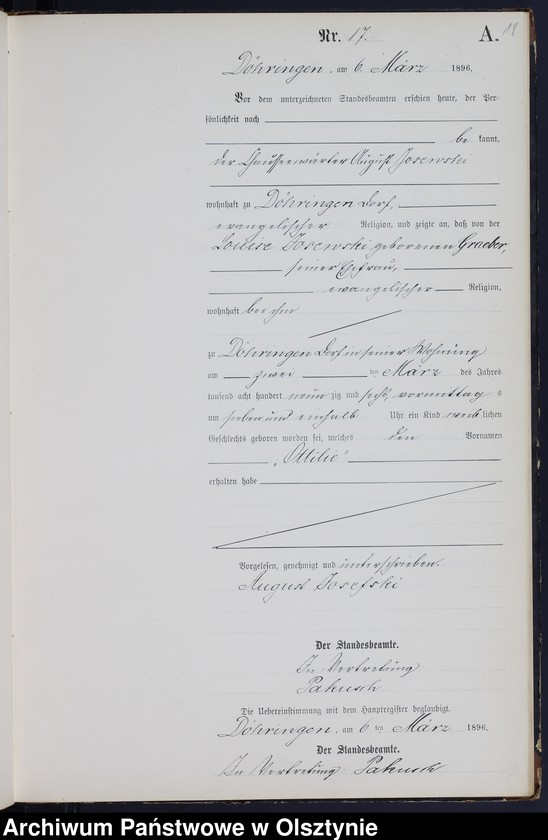 18
Nr. 17. A.
Döhringen, am 6. März 1896.
Vor dem unterzeichneten Standesbeamten erschien heute, der Per-
sönlichkeit nach
be kannt,
der Chausseewärter August Josewski
wohnhaft zu Döhringen Dorf,
evangelischer Religion, und zeigte an, daß von der
Louise Josewski geborenen Graeber,
seiner Ehefrau,
evangelischer Religion,
wohnhaft bei ihm
zu Döhringen Dorf in seiner Wohnung
am zwei ten März des Jahres
tausend acht hundert neun zig und sechs, vormittag s
um sieben und einhalb Uhr ein Kind weib lichen
Geschlechts geboren worden sei, welches den Vornamen
„Ottilie“
erhalten habe
Vorgelesen, genehmigt und unterschrieben.
August Josefski
Der Standesbeamte.
In Vertretung
Pakusch
Die Uebereinstimmung mit dem Hauptregister beglaubigt.
Döhringen, am 6 ten März 1896.
Der Standesbeamte.
In Vertretung Pakusch
Archiwum Państwowe w Olsztynie